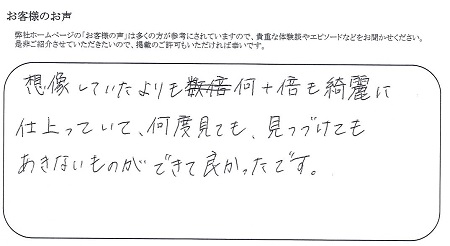 お客様のお声
弊社ホームページの「お客様の声」は多くの方が参考にされていますので、貴重な体験談やエピソードなどをお聞かせください。
是非ご紹介させていただきたいので、掲載のご許可もいただければ幸いです。
想像していたよりも数倍何十倍も綺麗に
仕上っていて、何度見ても、見つづけても
あきないものができて良かったです。